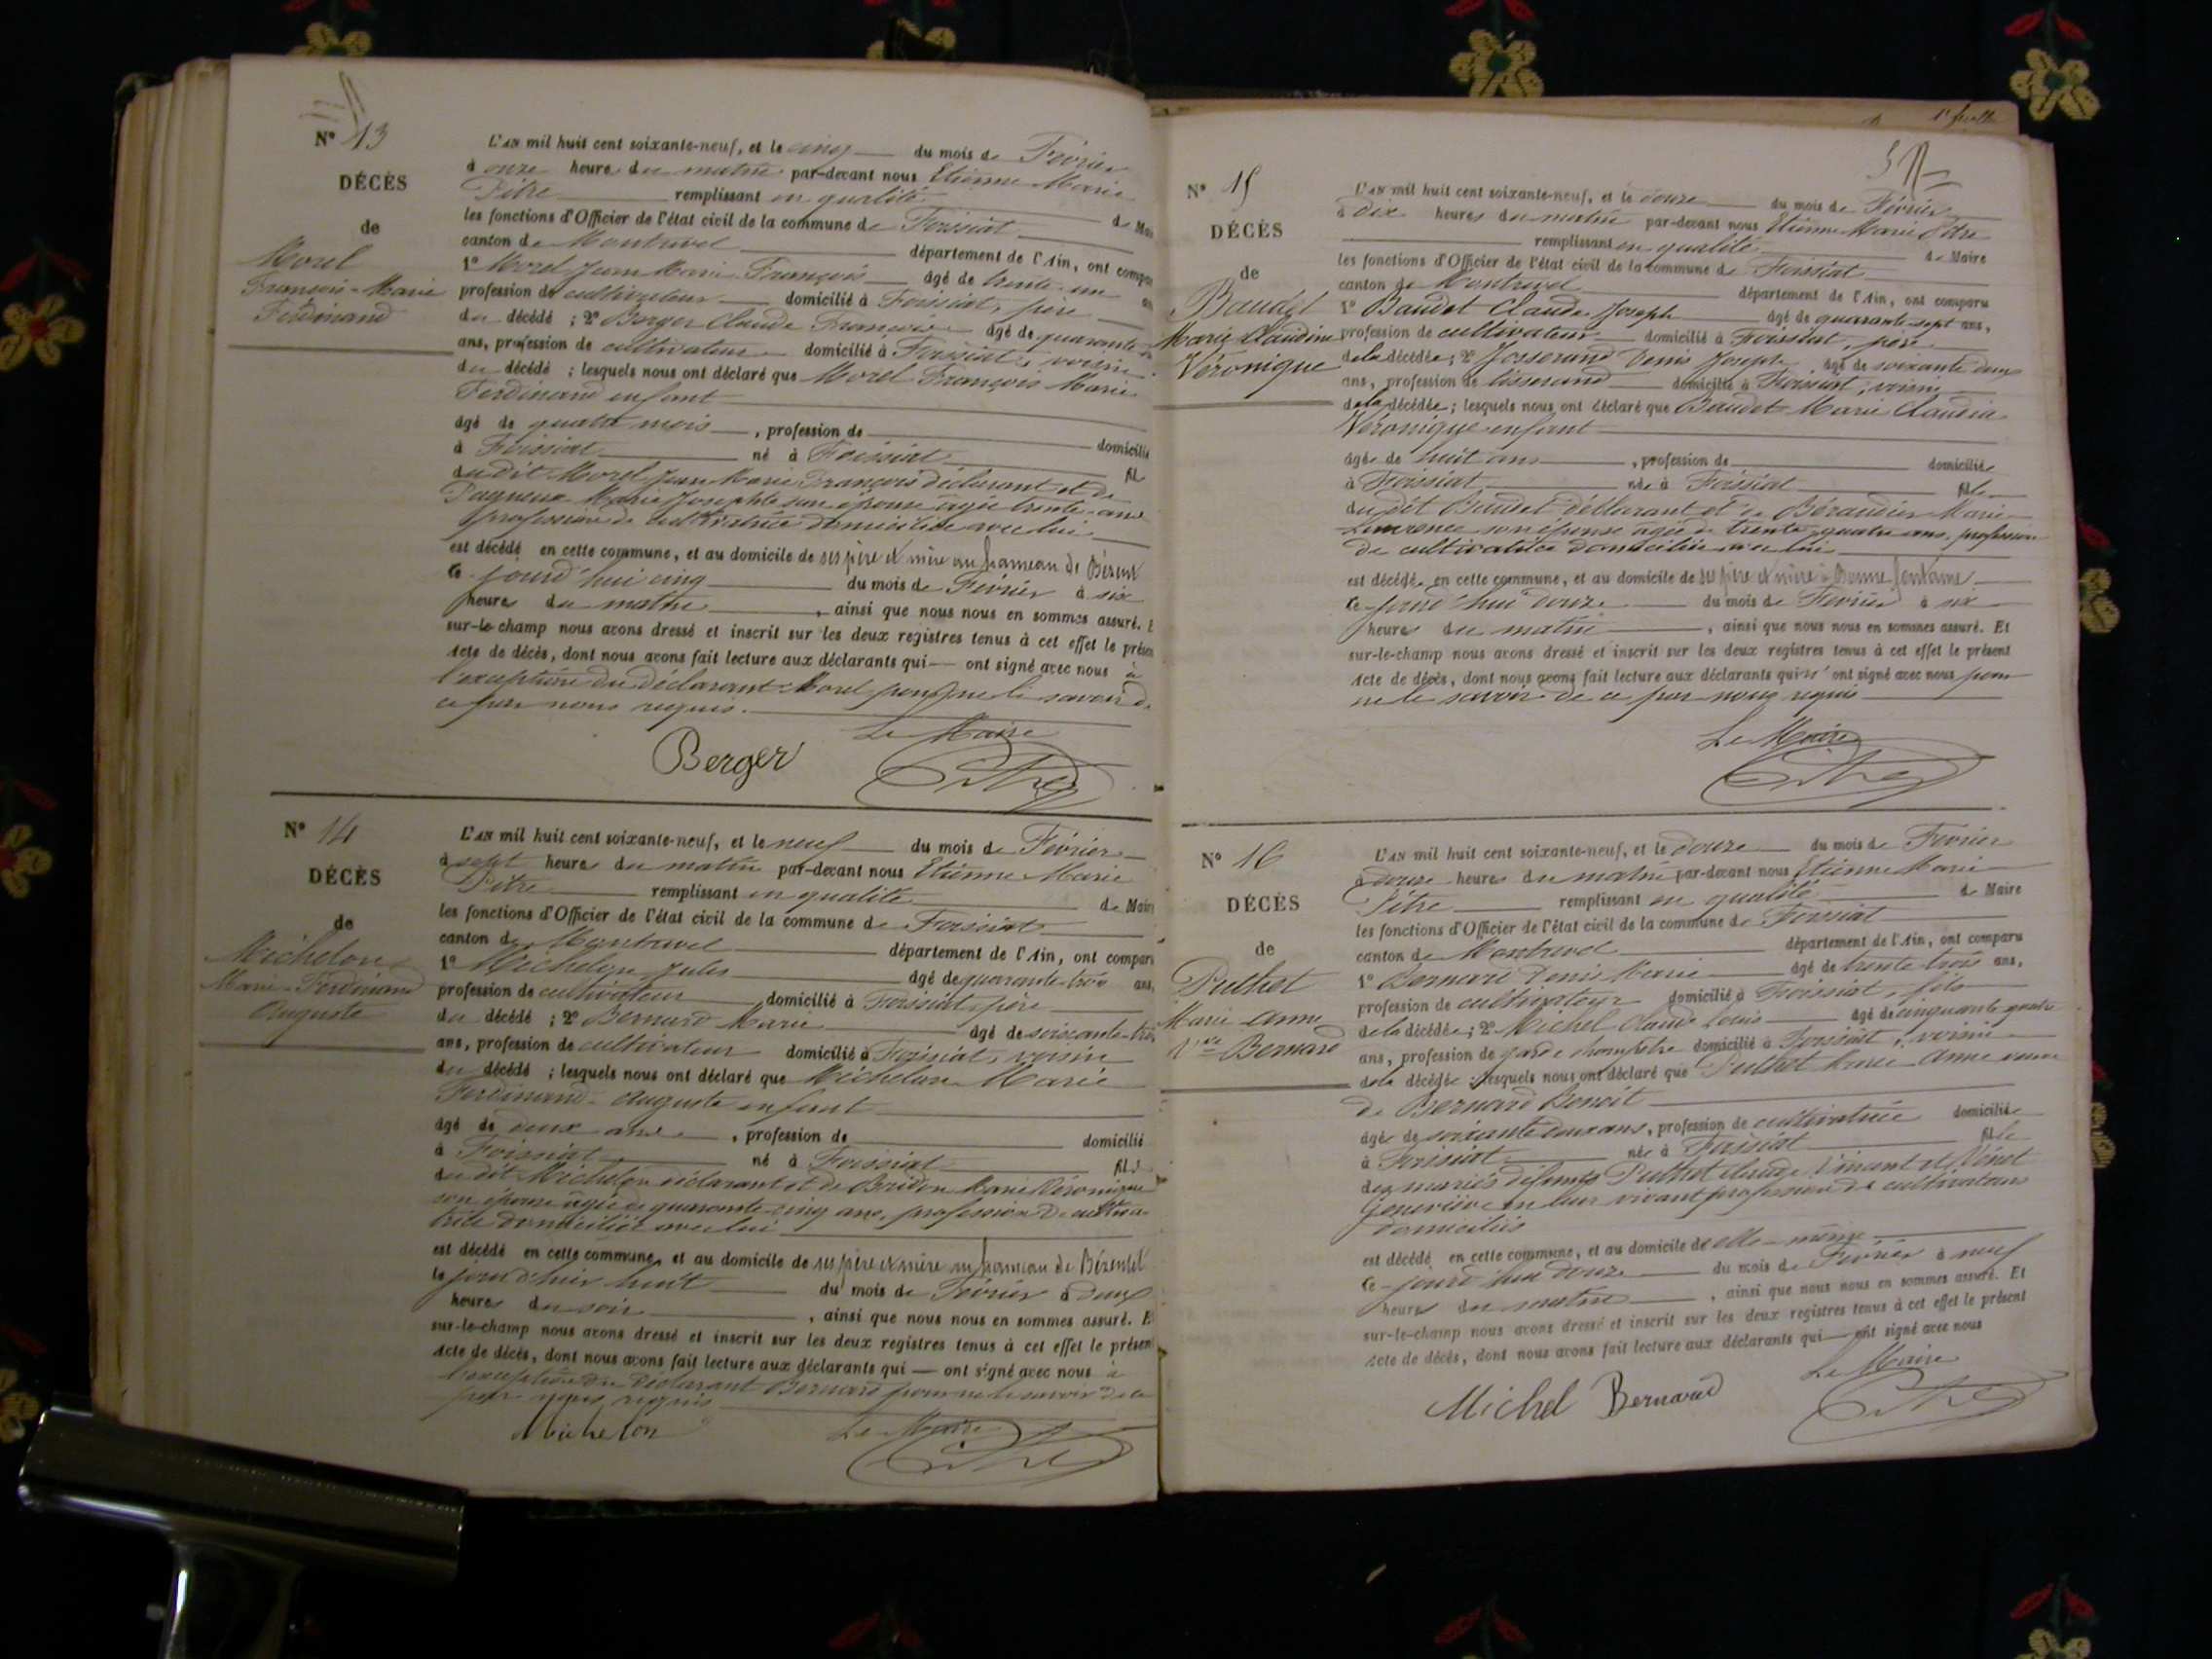 N° 13
DÉCÈS
de
Morel
François-Marie
Ferdinand
L'AN mil huit cent soixante-neuf, et le cinq du mois de Février
à onze heures du matin par-devant nous Etienne Marie
Pitre remplissant en qualité de Mai
les fonctions d'Officier de l'état civil de la commune de Foissiat
canton de Montrevel département de l'Ain, ont compa
1° Morel Jean Marie François âgé de trente-un an
profession de cultivateur domicilié à Foissiat, père
du décédé ; 2° Berger Claude François âgé de quarante
ans, profession de cultivateur domicilié à Foissiat, voisin
du décédé ; lesquels nous ont déclaré que Morel François Marie
Ferdinand enfant
âgé de quatre mois, profession de domicilié
à Foissiat né à Foissiat fils
dudit Morel Jean Marie François déclarant et de
Pagneux Marie Josephte son épouse âgée trente ans
profession de cultivatrice domiciliée avec lui
est décédé en cette commune, et au domicile de ses père et mère au hameau de
ce jourd'hui cinq du mois de Février à six
heures du matin, ainsi que nous nous en sommes assuré. E
sur-le-champ nous avons dressé et inscrit sur les deux registres tenus à cet effet le présen
Acte de décès, dont nous avons fait lecture aux déclarants qui — ont signé avec nous à
l'exception du déclarant Morel pour ne le savoir de
ce par nous requis.
Le Maire
Berger Pitre
N° 14
DÉCÈS
de
Michelon
Marie-Ferdinand
Auguste
L'AN mil huit cent soixante-neuf, et le neuf du mois de Février
à sept heures du matin par-devant nous Etienne Marie
Pitre remplissant en qualité de Maire
les fonctions d'Officier de l'état civil de la commune de Foissiat
canton de Montrevel département de l'Ain, ont comparu
1° Michelon Jules âgé de quarante-trois ans,
profession de cultivateur domicilié à Foissiat, père
du décédé ; 2° Bernard Marie âgé de soixante-trois
ans, profession de cultivateur domicilié à Foissiat, voisin
du décédé ; lesquels nous ont déclaré que Michelon Marie
Ferdinand-Auguste enfant
âgé de deux ans, profession de domicilié
à Foissiat né à Foissiat fils
du dit Michelon déclarant et de Bridon Marie Véronique
son épouse âgée de quarante-cinq ans, profession de cultiva
trice domiciliée avec lui
est décédé en cette commune, et au domicile de ses père et mère au hameau de Bézentel
le jour d'hier huit du mois de Février à deux
heures du soir, ainsi que nous nous en sommes assuré. E
sur-le-champ nous avons dressé et inscrit sur les deux registres tenus à cet effet le présen
Acte de décès, dont nous avons fait lecture aux déclarants qui — ont signé avec nous à
l'exception du déclarant Bernard pour ne le savoir de ce
par nous requis
Michelon Le Maire
Pitre
N° 15
DÉCÈS
de
Baudet
Marie Claudine
Véronique
L'AN mil huit cent soixante-neuf, et le douze du mois de Février
à dix heures du matin par-devant nous Etienne Marie Pitre
remplissant en qualité de Maire
les fonctions d'Officier de l'état civil de la commune de Foissiat
canton de Montrevel département de l'Ain, ont comparu
1° Baudet Claude Joseph âgé de quarante-sept ans,
profession de cultivateur domicilié à Foissiat, père
de la décédée ; 2° Josserand Denis Joseph âgé de soixante deux
ans, profession de tisserand domicilié à Foissiat, voisin
de la décédée ; lesquels nous ont déclaré que Baudet Marie Claudine
Véronique enfant
âgée de huit ans, profession de domiciliée
à Foissiat née à Foissiat fille
du dit Baudet déclarant et de Bérardier Marie
Laurence son épouse âgée de trente-quatre ans, profession
de cultivatrice domiciliée avec lui
est décédée en cette commune, et au domicile de ses père et mère à Bonne fontaine
ce jourd'hui douze du mois de Février à six
heures du matin, ainsi que nous nous en sommes assuré. Et
sur-le-champ nous avons dressé et inscrit sur les deux registres tenus à cet effet le présent
Acte de décès, dont nous avons fait lecture aux déclarants qui n'ont signé avec nous pour
ne le savoir de ce par nous requis
Le Maire
Pitre
N° 16
DÉCÈS
de
Puthet
Marie Anne
Vve Bernard
L'AN mil huit cent soixante-neuf, et le douze du mois de Février
à douze heures du matin par-devant nous Etienne Marie
Pitre remplissant en qualité de Maire
les fonctions d'Officier de l'état civil de la commune de Foissiat
canton de Montrevel département de l'Ain, ont comparu
1° Bernard Denis Marie âgé de trente-trois ans,
profession de cultivateur domicilié à Foissiat, fils
de la décédée ; 2° Michel Claude Louis âgé de cinquante quatre
ans, profession de garde champêtre domicilié à Foissiat, voisin
de la décédée ; lesquels nous ont déclaré que Puthet Marie Anne veuve
de Bernard Benoit
âgée de soixante ans, profession de cultivatrice domiciliée
à Foissiat née à Foissiat fille
des mariés défunts Puthet Claude Vincent et
Geneviève en leur vivant profession de cultivateurs
domiciliés
est décédé en cette commune, et au domicile de elle-même
ce jourd'hui douze du mois de Février à neuf
heures du matin, ainsi que nous nous en sommes assuré. Et
sur-le-champ nous avons dressé et inscrit sur les deux registres tenus à cet effet le présent
Acte de décès, dont nous avons fait lecture aux déclarants qui — ont signé avec nous
Le Maire
Michel Bernard Pitre